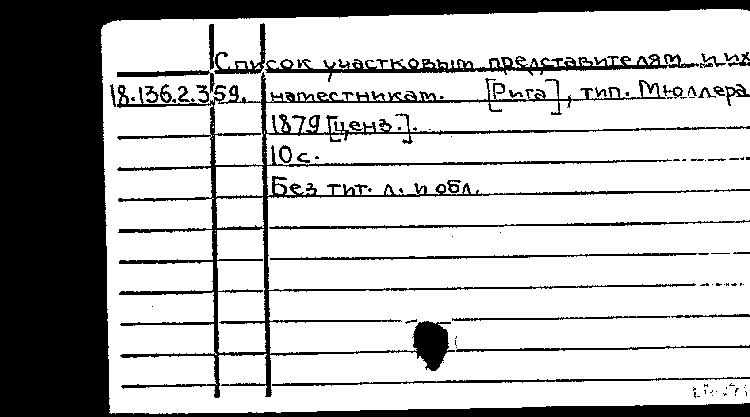 Список участковым представителям и их
18.136.2.359. наместникам. [Рига], тип. Мюллера
1879 [ценз.].
10 с.
Без тит. л. и обл.